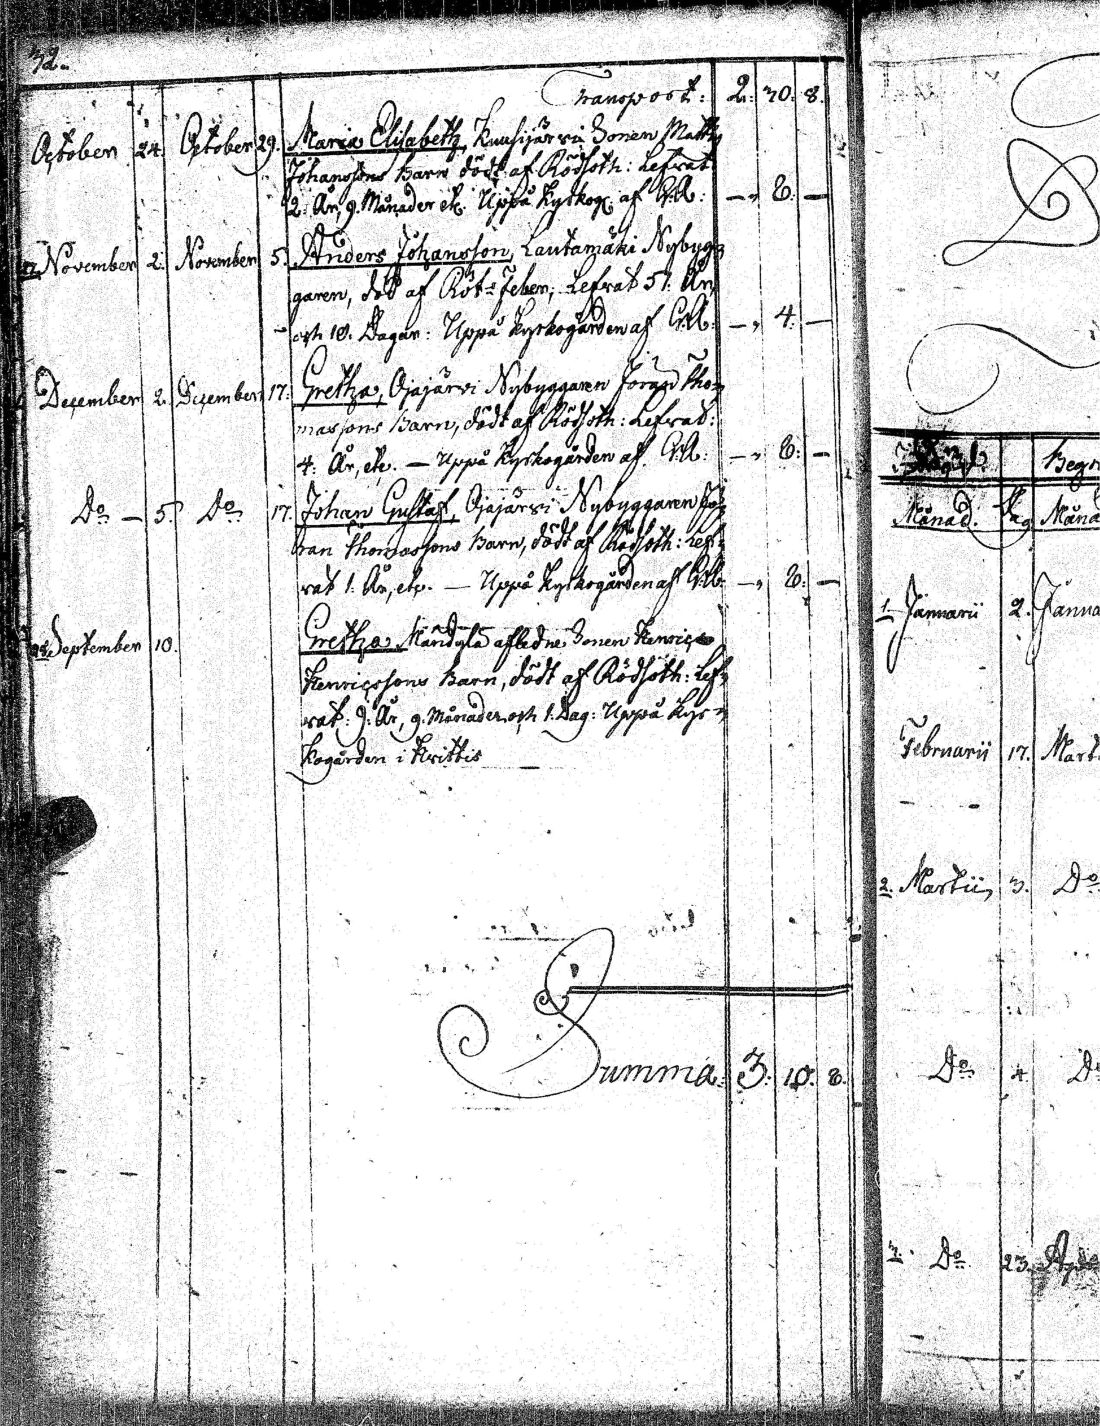 32.
Transport: 2. 30. 8.
October 24. October 29. Maria Elisabeth, Kuusijärvi Bonen Matts
Johanssons Barn dödt af Rödsoth: Lefvat
2: År, 9. Månader etc. Uppå Kyrkog. af — „ 8. —
November 2. November 5. Anders Johansson, Lautamäki Nybyg-
garen, död af Röt-Feber, Lefvat 51. År,
och 18. Dagar: Uppå Kyrkogården af — „ 4. —
December 2. December 17. Gretha, Ojajärvi Nybyggaren Jöran Tho-
massons Barn, dödt af Rödsoth: Lefvat:
4: År, etc. — Uppå Kyrkogården af — „ 8. —
Do — 5. Do 17. Johan Gustaf, Ojajärvi Nybyggaren Jö-
ran Thomassons Barn, dödt af Rödsoth: Lef-
vat 1. År, etc. — Uppå Kyrkogården af — „ 8. —
September 10. Gretha Mändylä aflidne Bonen Henric
Henricssons Barn, dödt af Rödsoth: Lef-
vat: 9: År, 9. Månader och 1. Dag: Uppå Kyr-
kogården i Kvittis
Summa. 3. 10. 8.
Månad. Dag Måna
1. Januarii 2. Janua
Februarii 17. Mart
2. Martii, 3. Do
Do 4 Do
3. Do 23.